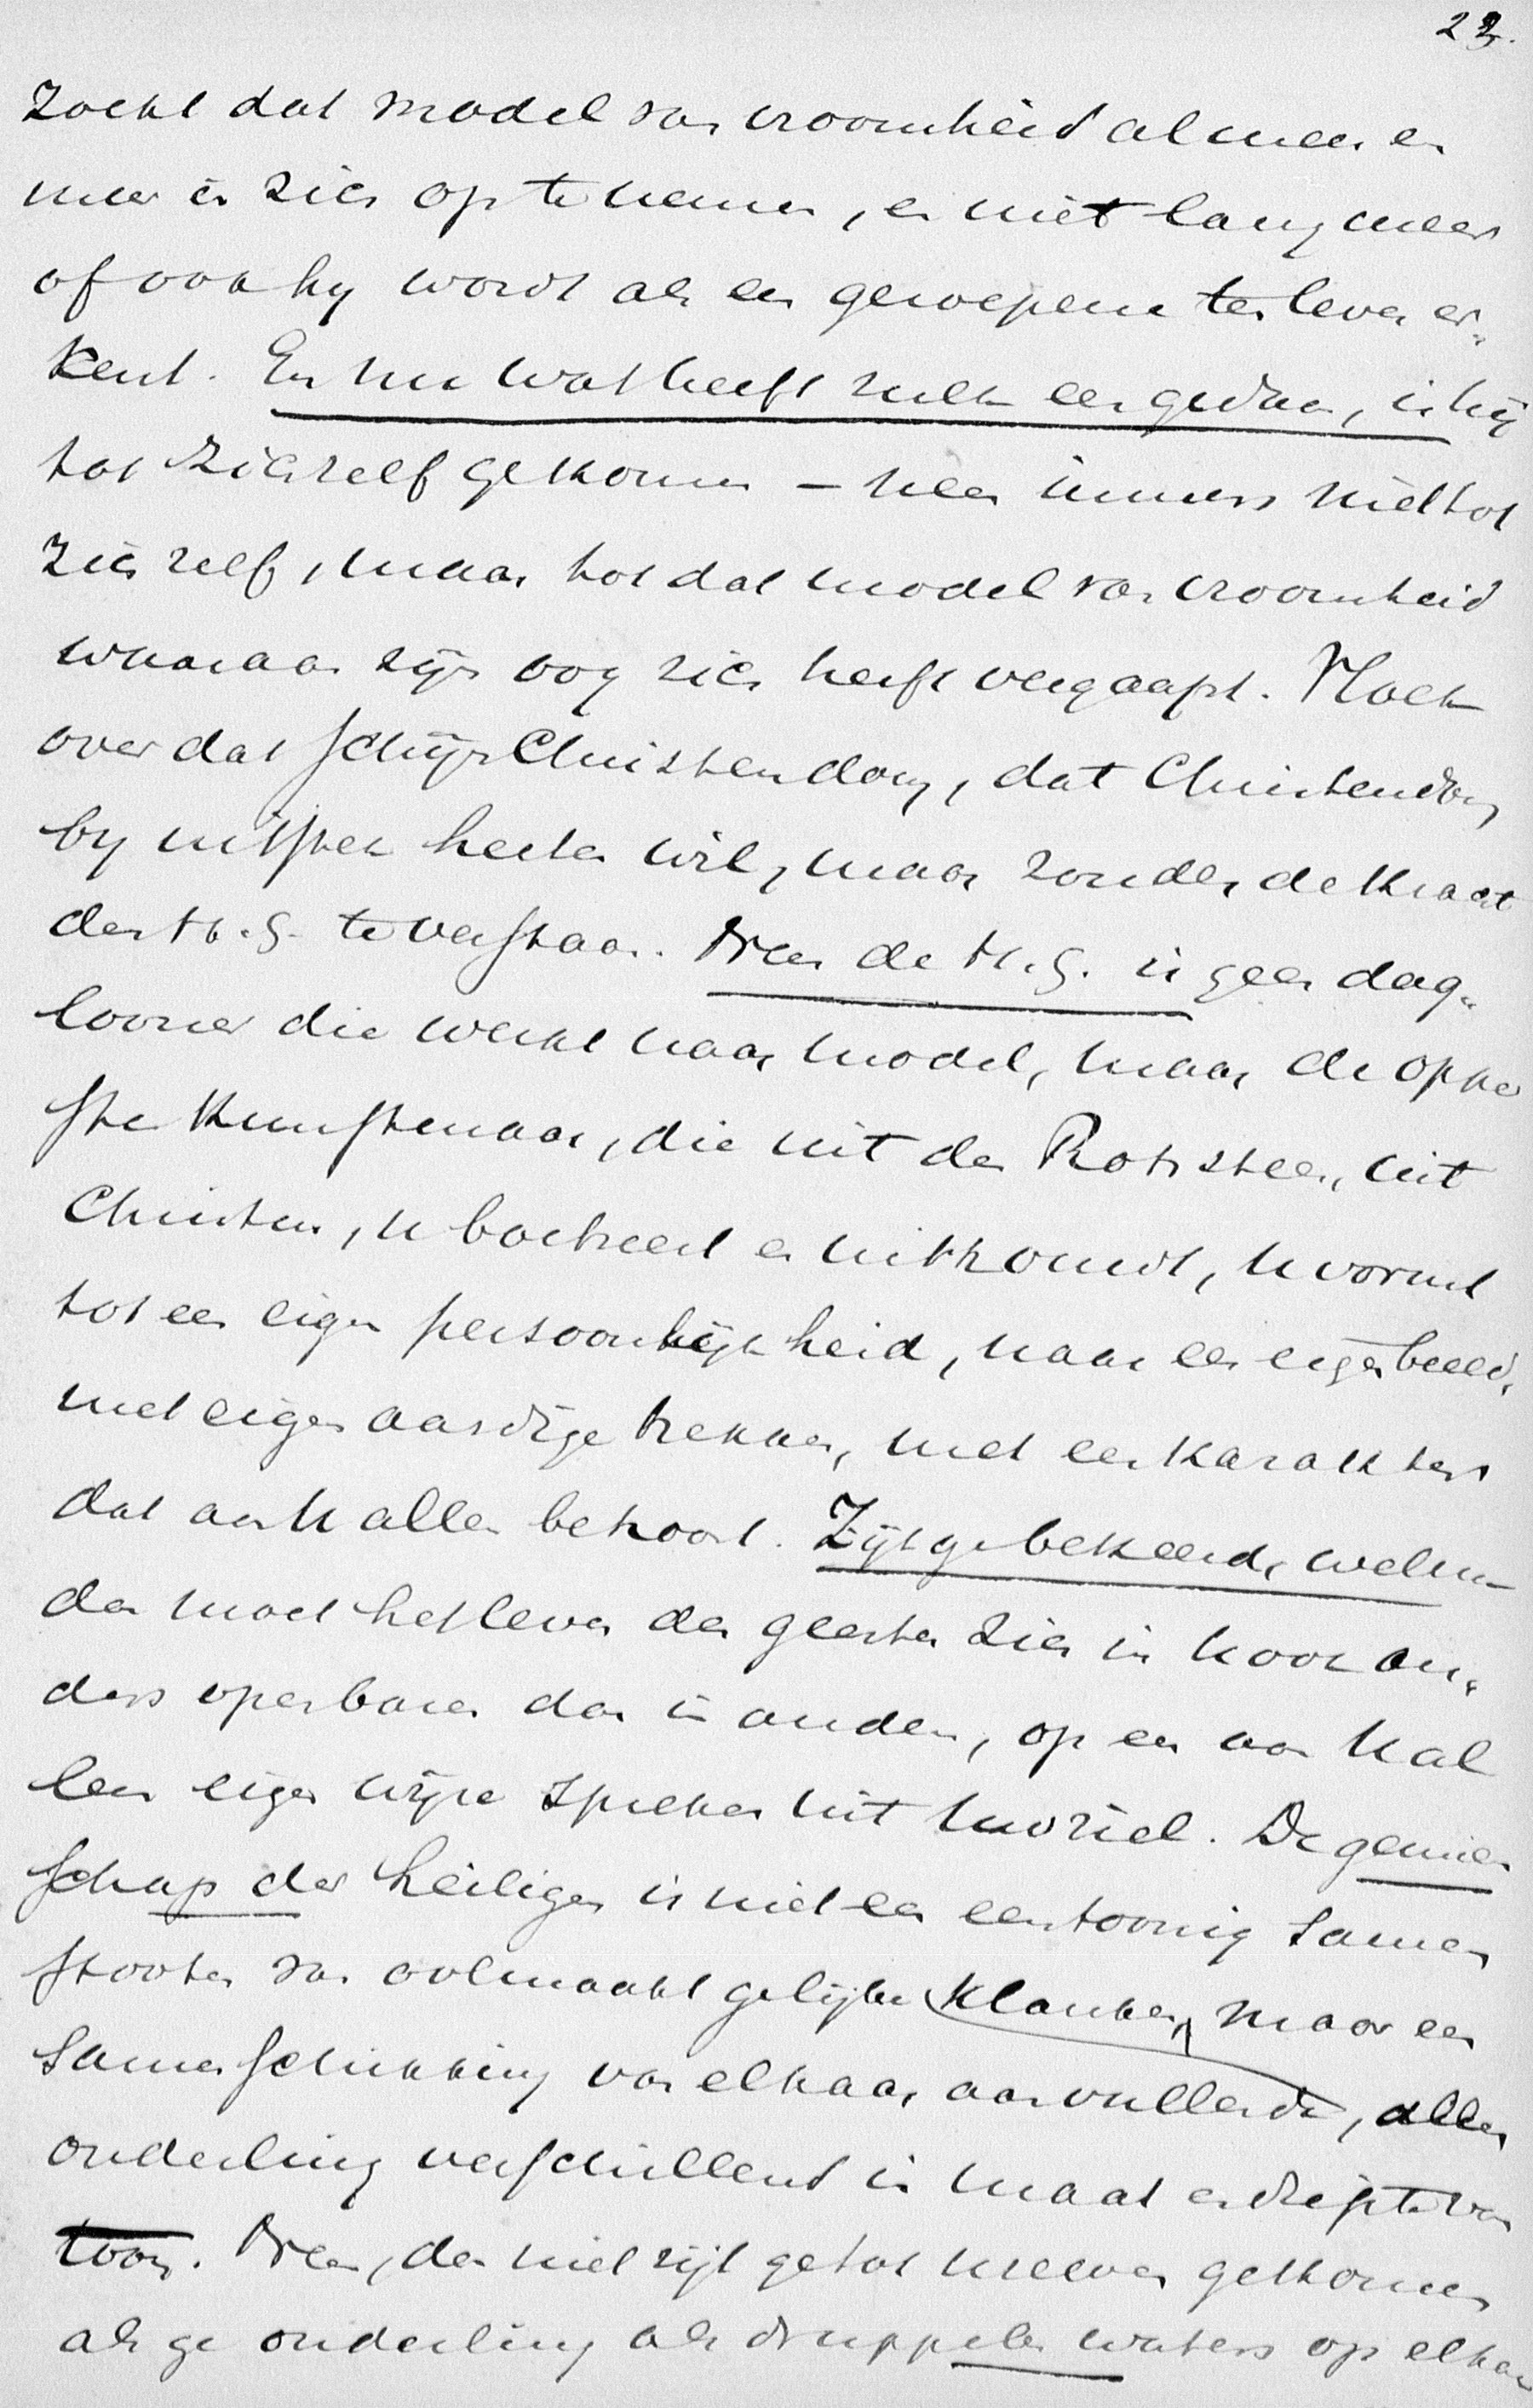 23.
zoekt dat model van vroomheid al meer en
meer in zich op te nemen, en niet lang meer
of ook hy wordt als een geroepene ten leven er„
kent. En nu wat heeft zulk een gedaan, is hij
tot zichzelf gekomen – neen immers niet tot
zich zelf, maar tot dat model van vroomheid
waaraan zijn oog zich heeft vergaapt. Vloek
over dat schijn Christendom, dat Christendom
by uitstek heeten wil, maar zonder de kracht
des H.G. te verstaan. Neen de H.G. is geen dag„
looner die werkt naar model, maar de opper
ste Kunstenaar, die uit den Rotssteen, uit
Christus, u boetseert en uithouwt, u vormt
tot een eigen persoonlijkheid, naar een eigen beeld,
met eigenaardige trekken, met een karakter
dat aan u alleen behoort. Zijt ge bekeerd, welnu
dan moet het leven des geestes zich in u ook an„
ders openbaren dan in anderen, op een aan u al
leen eigen wijze spreken uit uw ziel. De gemeen
schap der heiligen is niet een eentoonig samen
stooten van volmaakt gelijke klanken, maar een
samenschikking van elkaar aanvullende, allen
onderling verschillend in maat en diepte van
toon. Neen, dan niet zijt ge tot u leven gekomen
als ge onderling als druppelen waters op elkaar